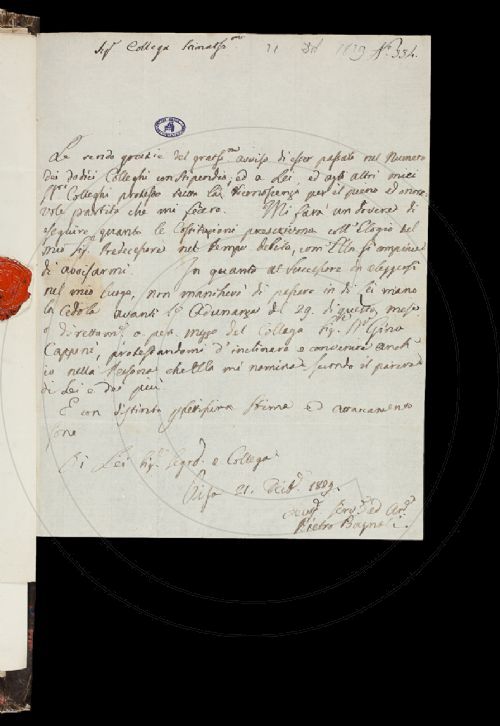 Sig.r Collega
21 1829 N. 334.
Le rendo grazie del avviso d'esser passato nel Numero
dei dodici Colleghi con stipendio, ed a Lei, ed agli altri miei
Colleghi protesto tutta la riconoscenza per il pieno ed onore
vole partito che mi fecero. Mi farò un dovere di
eseguire quanto le Costituzioni prescrivono coll'Elogio del
mio Sig. Predecessore nel tempo debito, com'Ella si
di avvisarmi. In quanto al Successore in eleggersi
nel mio luogo, non mancherò di passare in di Lei mano
la cedola avanti l'Adunanza de' 29. di questo mese
o direttam.e o per mezzo del Collega Sig. Gino
Capponi, protestandomi d'inclinare e convenire anch'
io nella Persona che Ella mi nomina secondo il parere
di Lei e dei più
E con distinta stima ed attaccamento
sono
Di Lei Sig. Segret. e Collega
Pisa 21. Dicb. 1829.
Pietro Bagnoli.